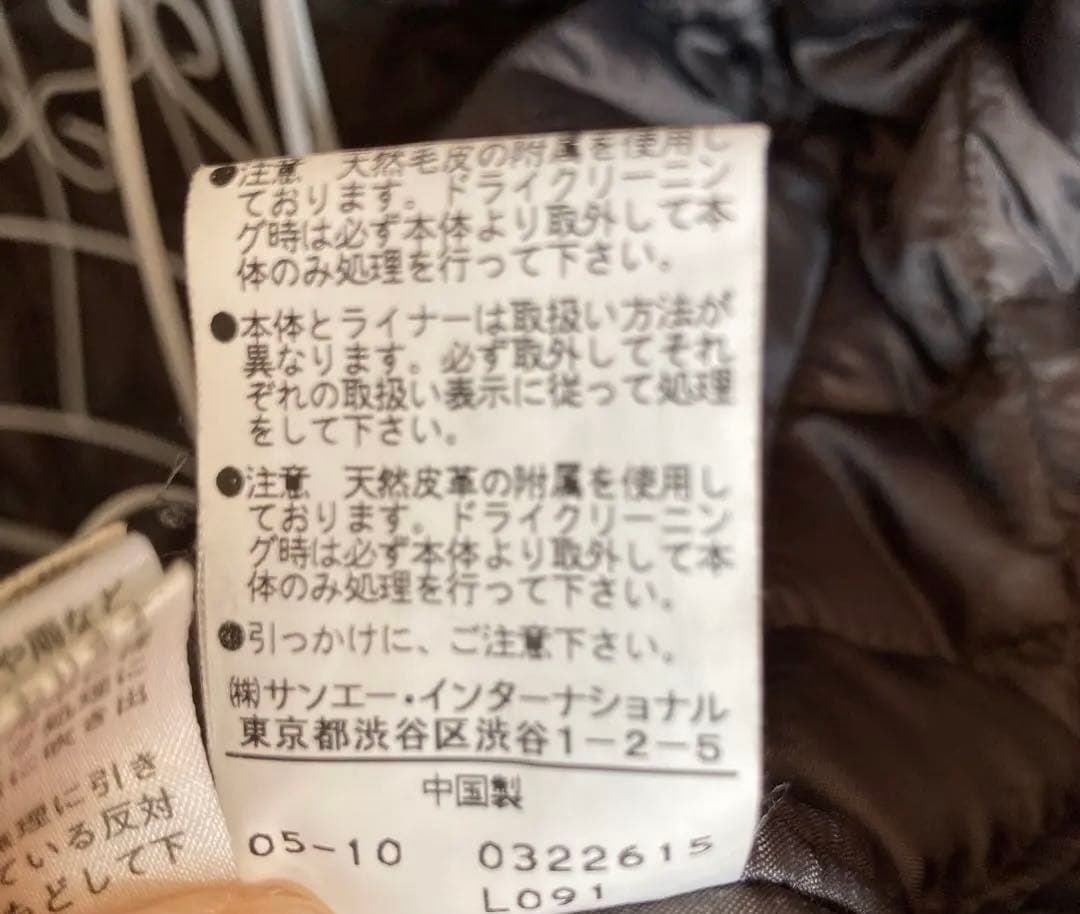 ●注意　天然毛皮の附属を使用し
ております。ドライクリーニン
グ時は必ず本体より取外して本
体のみ処理を行って下さい。
●本体とライナーは取扱い方法が
異なります。必ず取外してそれ
ぞれの取扱い表示に従って処理
をして下さい。
●注意　天然皮革の附属を使用し
ております。ドライクリーニン
グ時は必ず本体より取外して本
体のみ処理を行って下さい。
引っかけに、ご注意下さい。
㈱サンエー・インターナショナル
東京都渋谷区渋谷1－2－5
中国製
05-10　0322615
L091
に引き
ている反対
して下